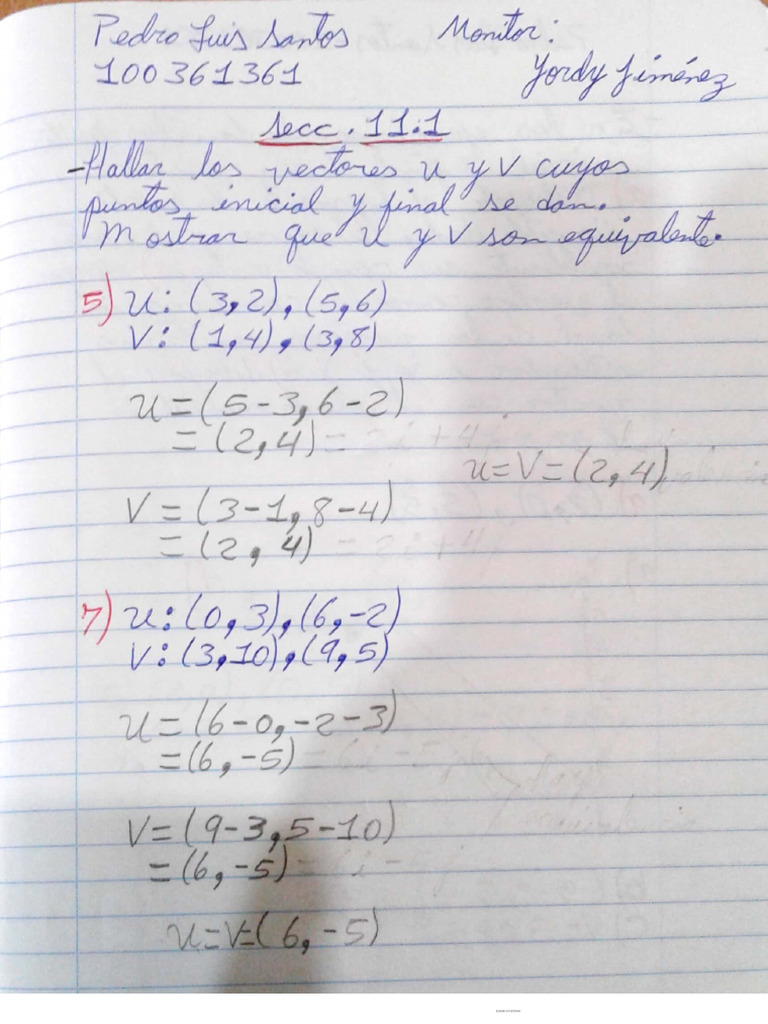 Pedro Luis Santos Monitor:
100361361 Yordy Jiménez
secc. 11.1
-Hallar los vectores u y v cuyos
puntos inicial y final se dan.
Mostrar que u y v son equivalente.
5) u: (3,2), (5,6)
v: (1,4), (3,8)
u = (5-3, 6-2)
= (2,4) = 2i + 4j
u=v=(2,4)
v = (3-1, 8-4)
= (2, 4) = 2i + 4j
7) u: (0,3), (6,-2)
v: (3,10), (9,5)
u = (6-0, -2-3)
= (6,-5) = 6i - 5j
v = (9-3, 5-10)
= (6,-5) = 6i - 5j
u=v=(6,-5)